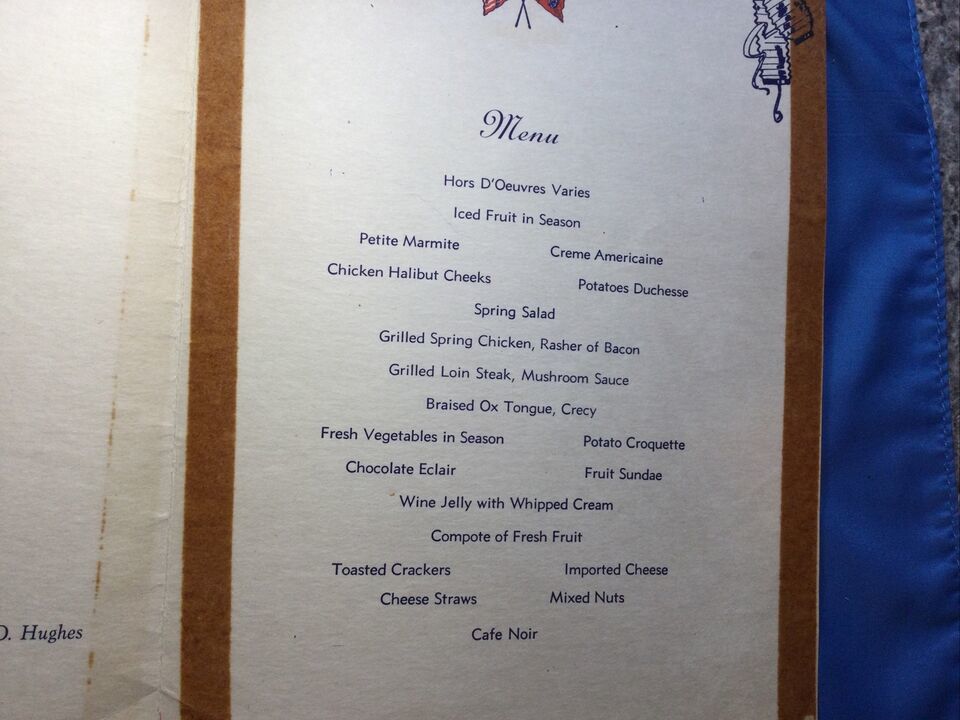 Menu
Hors D'Oeuvres Varies
Iced Fruit in Season
Petite Marmite Creme Americaine
Chicken Halibut Cheeks Potatoes Duchesse
Spring Salad
Grilled Spring Chicken, Rasher of Bacon
Grilled Loin Steak, Mushroom Sauce
Braised Ox Tongue, Crecy
Fresh Vegetables in Season Potato Croquette
Chocolate Eclair Fruit Sundae
Wine Jelly with Whipped Cream
Compote of Fresh Fruit
Toasted Crackers Imported Cheese
Cheese Straws Mixed Nuts
Cafe Noir
D. Hughes